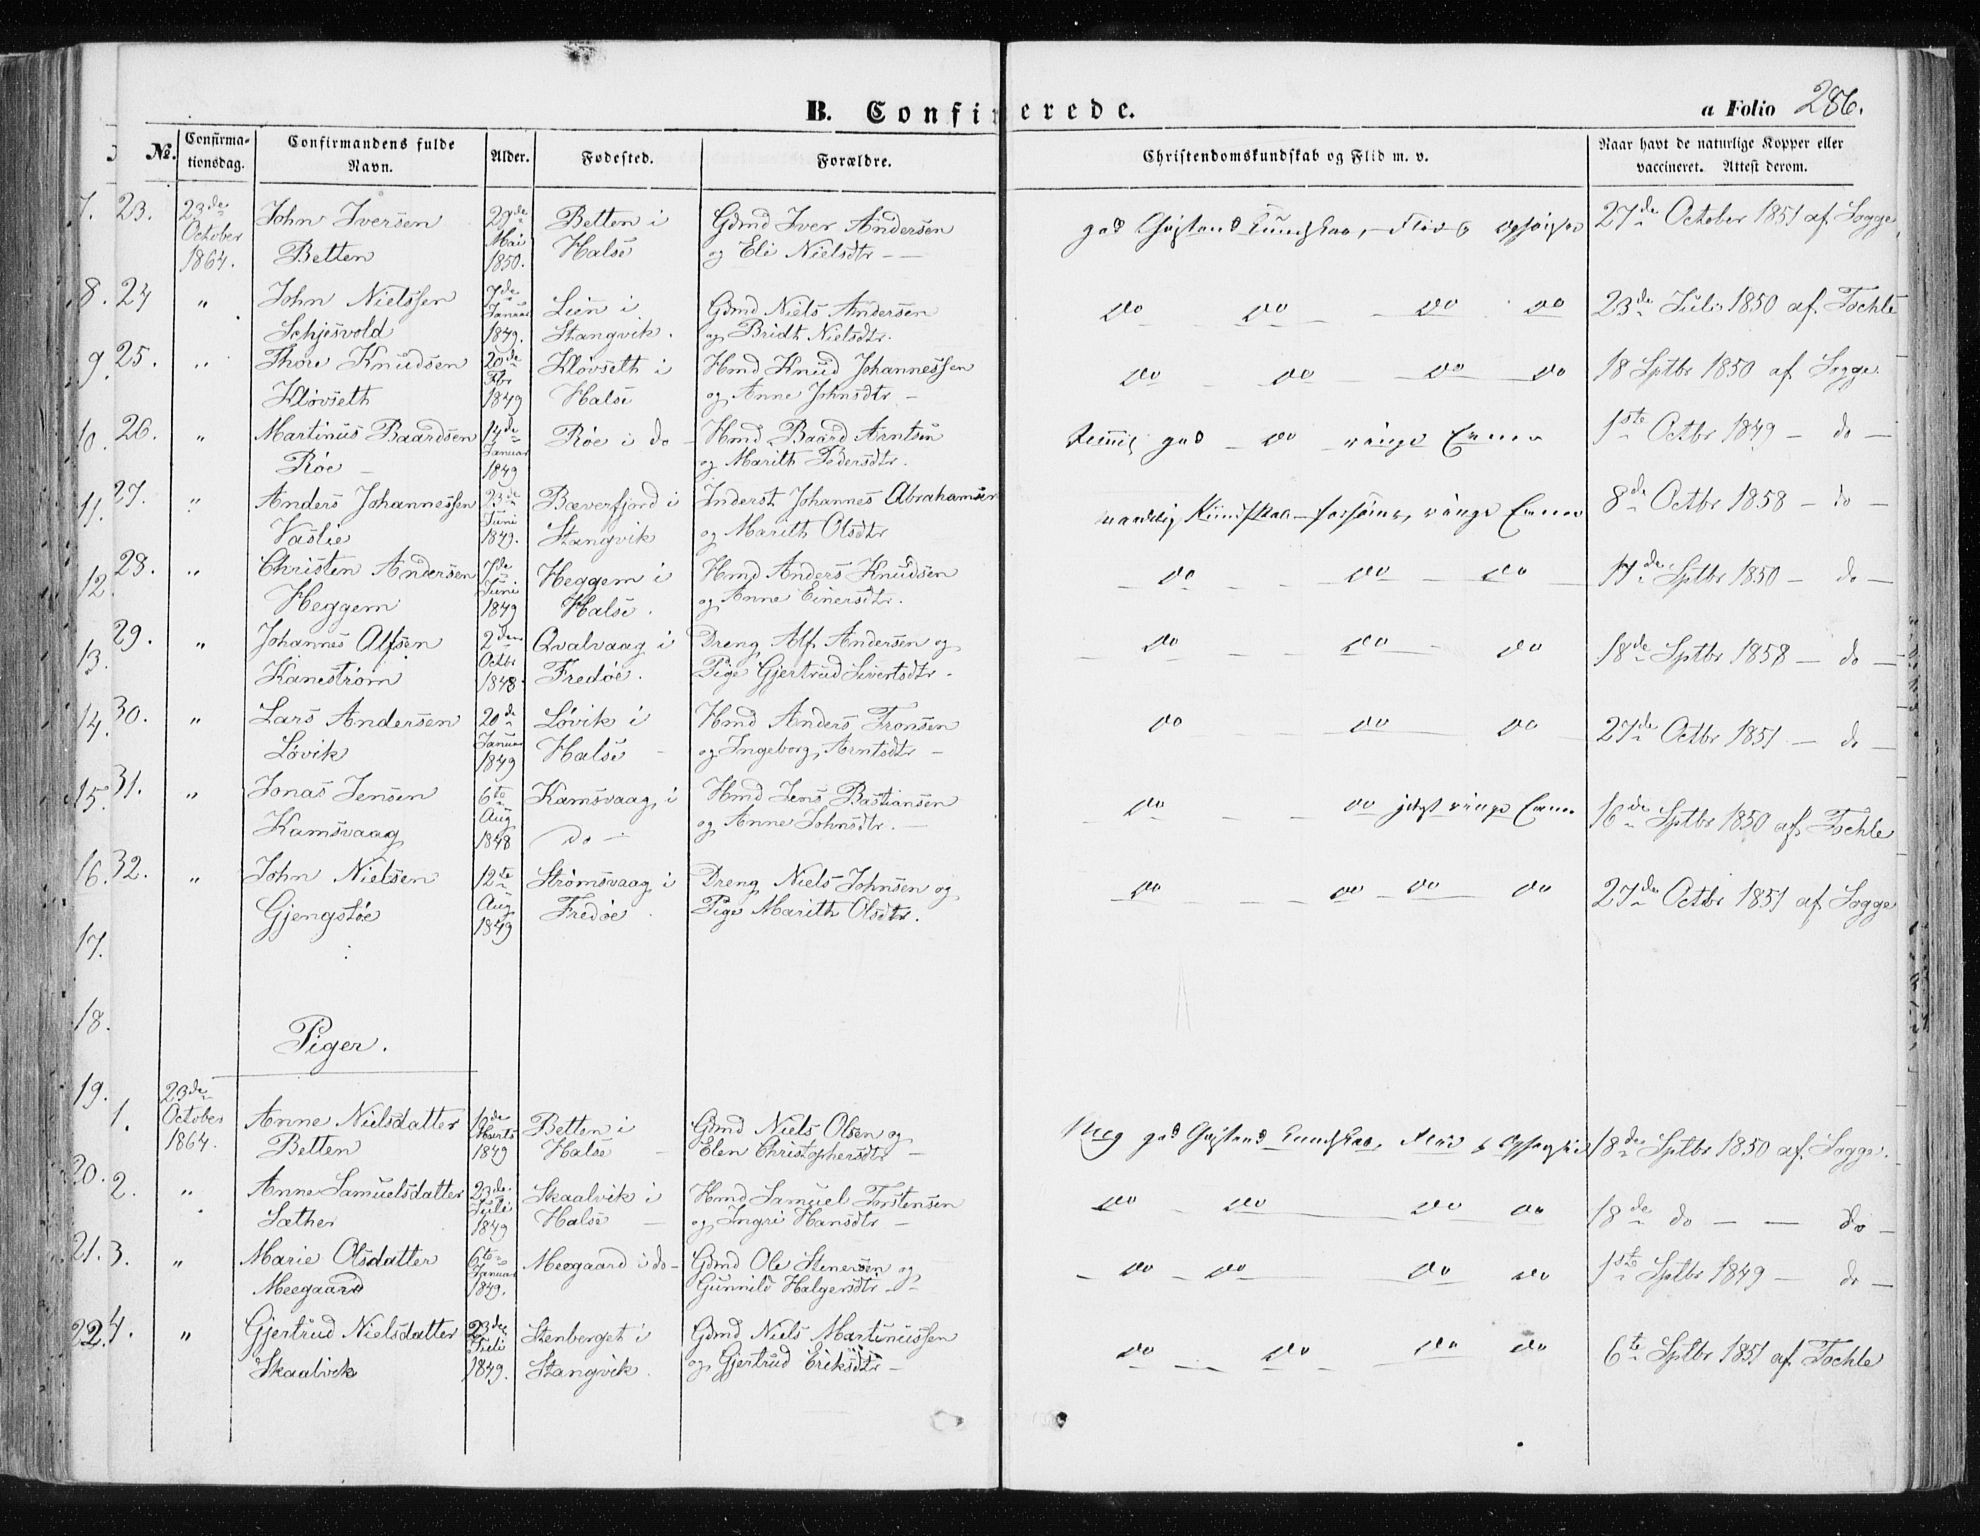 B. Confirmerede.
a Folio 286.
No. Confirmationsdag. Confirmandens fulde Navn. Alder. Fødested. Forældre. Christendomskundskab og Flid m. v. Naar havt de naturlige Kopper eller vaccineret. Attest derom.
23. 23de October 1864. John Iversen Betten Mai 1850. Betten i Halse Gdmd Iver Andersen og Eli Nielsdtr 27de October 1851 af Sogge
24 " John Nielssen Schjesvold 7de Januar 1849. Lien i Stangvik. Gdmd Niels Andersen og Bridt Nielsdtr. do do do do 23de Juli 1850 af Tochle
25. " Thore Knudsen Kløvseth 20de Fbr 1849 Kløvseth i Halse Hmd Knud Johannessen og Anne Johnsdtr do do do do 18 Sptbr 1850 af Sogge
26. " Martinus Baardsen Røe 14de Januar 1849 Røe i do Hmd Baard Arntsen og Marith Pedersdtr. do 1ste Octbr 1849 — do —
27. " Anders Johannessen Vaslie 23de Juni 1849. Bæverfjord i Stangvik Inderst Johannes Abrahamsen og Marith Olsdtr 8de Octbr 1858 — do —
28. " Christen Andersen Heggem 7de Juni 1849 Heggem i Halse. Hmd Anders Knudsen og Anne Einersdtr. do do do Sptbr 1850 — do —
29. " Johannes Alfsen Kanestrøm 2den Octbr 1848 Qvalvaag i Fredøe. Dreng Alf Andersen og Pige Gjertrud Sivertsdtr. do do do 18de Sptbr 1858 — do —
30. " Lars Andersen Løvik 20de Januar 1849 Løvik i Halse Hmd Anders Tronsen og Ingeborg Arntsdtr do do do 27de Octbr 1851 — do —
31. " Jonas Jensen Kamsvaag 6te Aug 1848 Kamsvaag i do Hmd Jens Bastiansen og Anne Johnsdtr. do do 16de Sptbr 1850 af Tochle
32. " John Nielsen Gjengstøe 12te Aug 1849 Strømsvaag i Fredøe Dreng Niels Johnsen og Pige Marith Olsdtr. do do do do 27de Octbr 1851 af Sogge
Piger.
1. 23de October 1864. Anne Nielsdatter Betten Marts 1849 Betten i Halse Gdmd Niels Olsen og Elen Christophersdtr 18de Sptbr 1850 af Sogge.
2. " Anne Samuelsdatter Sæther 23de Juli 1849 Skaalvik i Halse Hmd Samuel Torstensen og Ingri Hansdtr do do do do 18de do — — do —
3. " Marie Olsdatter Meegaard 6te Januar 1849. Meegaard i do Gdmd Ole Stenersen og Gunnild Halgersdtr do do do do 1ste Sptbr 1849 — do —
4. " Gjertrud Nielsdatter Skaalvik 23de Juli 1849. Stenberget i Stangvik. Gdmd Niels Martinussen og Gjertrud Eriksdtr do do do do 6te Sptbr 1851 af Tochle
7.
8.
9.
10.
11.
12.
13.
14.
15.
16.
17.
18.
19.
20.
21.
22.